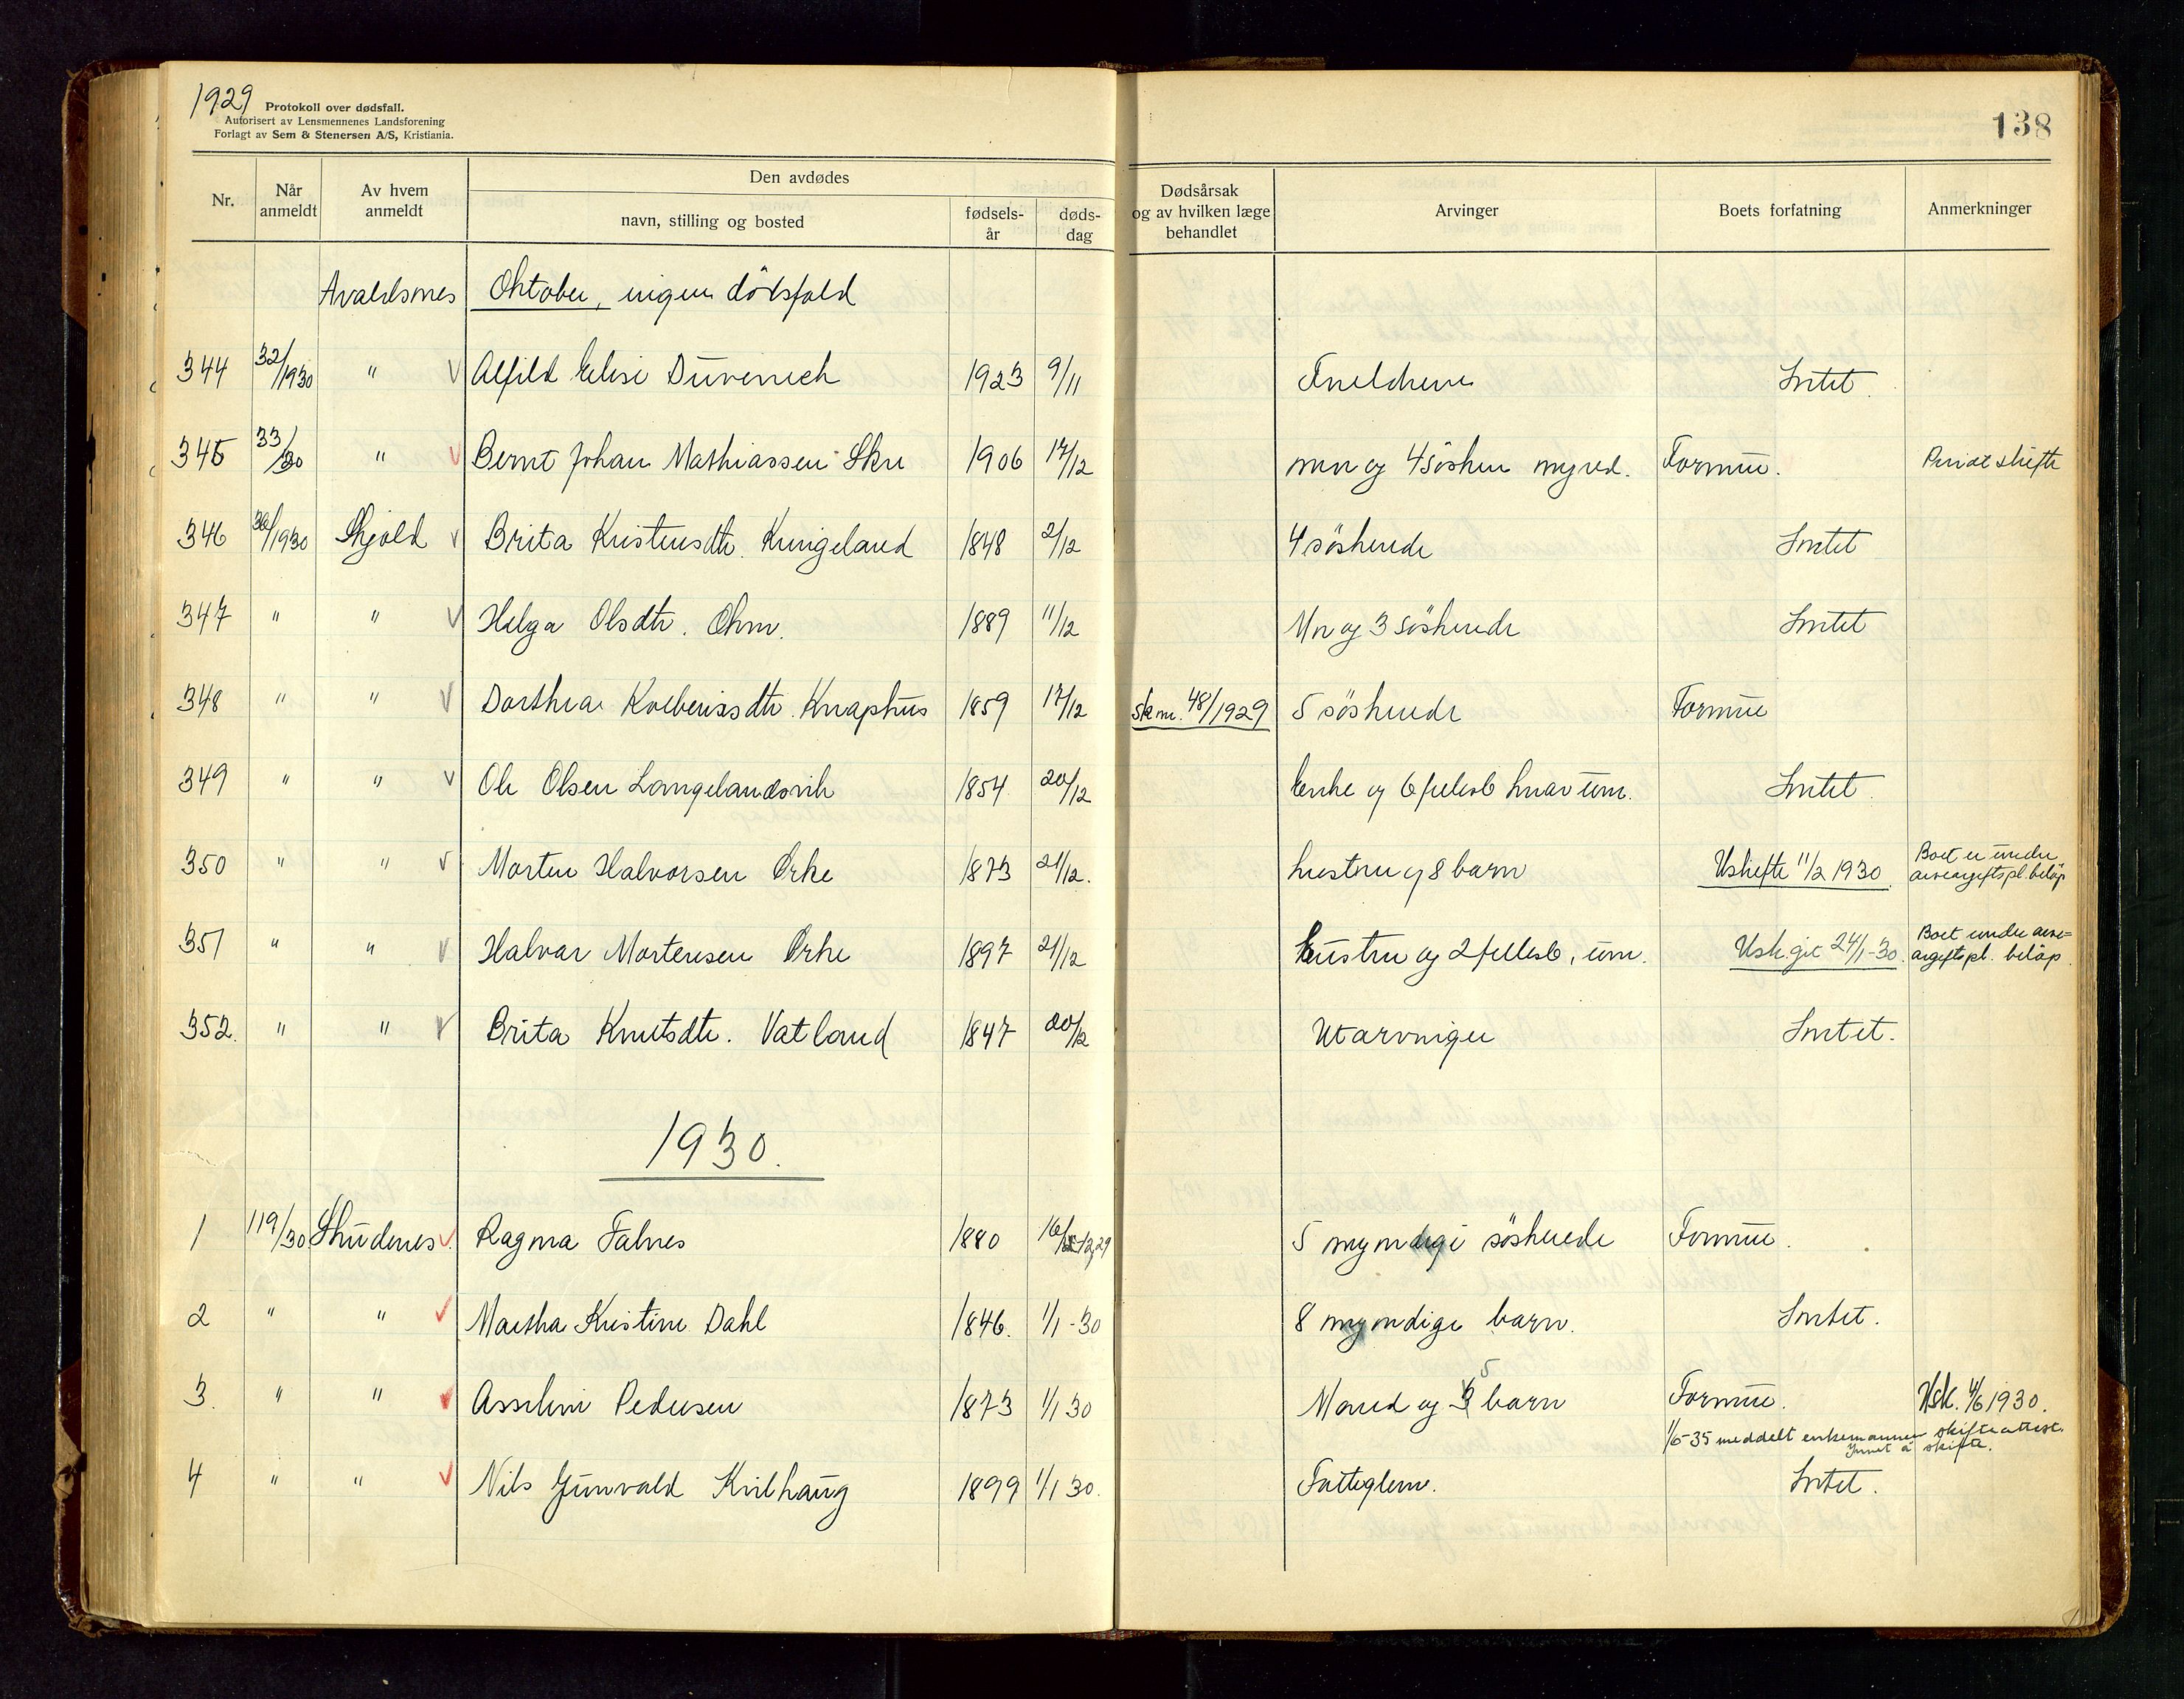 1929
Protokoll over dødsfall.
Autorisert av Lensmennenes Landsforening
Forlagt av Sem & Stenersen A/S, Kristiania.
138
Nr. Når anmeldt Av hvem anmeldt Den avdødes navn, stilling og bosted fødsels-år døds-dag Dødsårsak og av hvilken læge behandlet Arvinger Boets forfatning Anmerkninger
Avaldsnes Oktober, ingen dödsfald
344 32/1930 " V Alfild Elise Düvenich 1923 9/11 Intet.
345 33/30 " V Bernt Johan Mathiassen Skre 1906 17/12 mor og 4 sösken mynd. Formue. Privat skifte
346 1930 Skjold V Brita Kristensdtr. Kringeland 1848 2/12 4 söskende Intet
347 " " V Helga Olsdtr. 1889 11/12 Mor og 3 söskende Intet
348 " " V Dorthea Kolbeinsdtr. Knaphus 1859 17/12 sk nr. 48/1929 5 söskende Formue
349 " " V Ole Olsen Langelandsvik 1854 20/12 Enke og 6 fellesb hvorav um. Intet
350 " " V Morten Halvorsen Ørke 1873 21/12. hustru og 8 barn Uskifte 11/2 1930. Boet er under arveavgiftspl. beløp
351 " " V Halvor Mortensen Ørke 1897 21/12 Hustru og 2 fellesb, um. Usk. git 24/1-30. Boet under arve=avgiftspl. beløp.
352. " " V Brita Knutsdtr. Vatland 1847 20/12 Utarvinger Intet.
1930.
1 119/30 Skudenes V. Ragna Falnes 1880 16/12 29 5 myndige söskende Formue.
2 " " V Martha Kristine Dahl 1846. 1/1-30 8 myndige barn. Intet.
3. " " V Asseline Pedersen 1873 1/1 30 Mand og 5 barn Formue. Usk. 4/6 1930.
1/6-35 meddelt enkemannen skifteattest.
Gunnet å skifte.
4 " " V Nils Gunvald Kvilhaug 1899 1/1 30. Fattiglem. Intet.